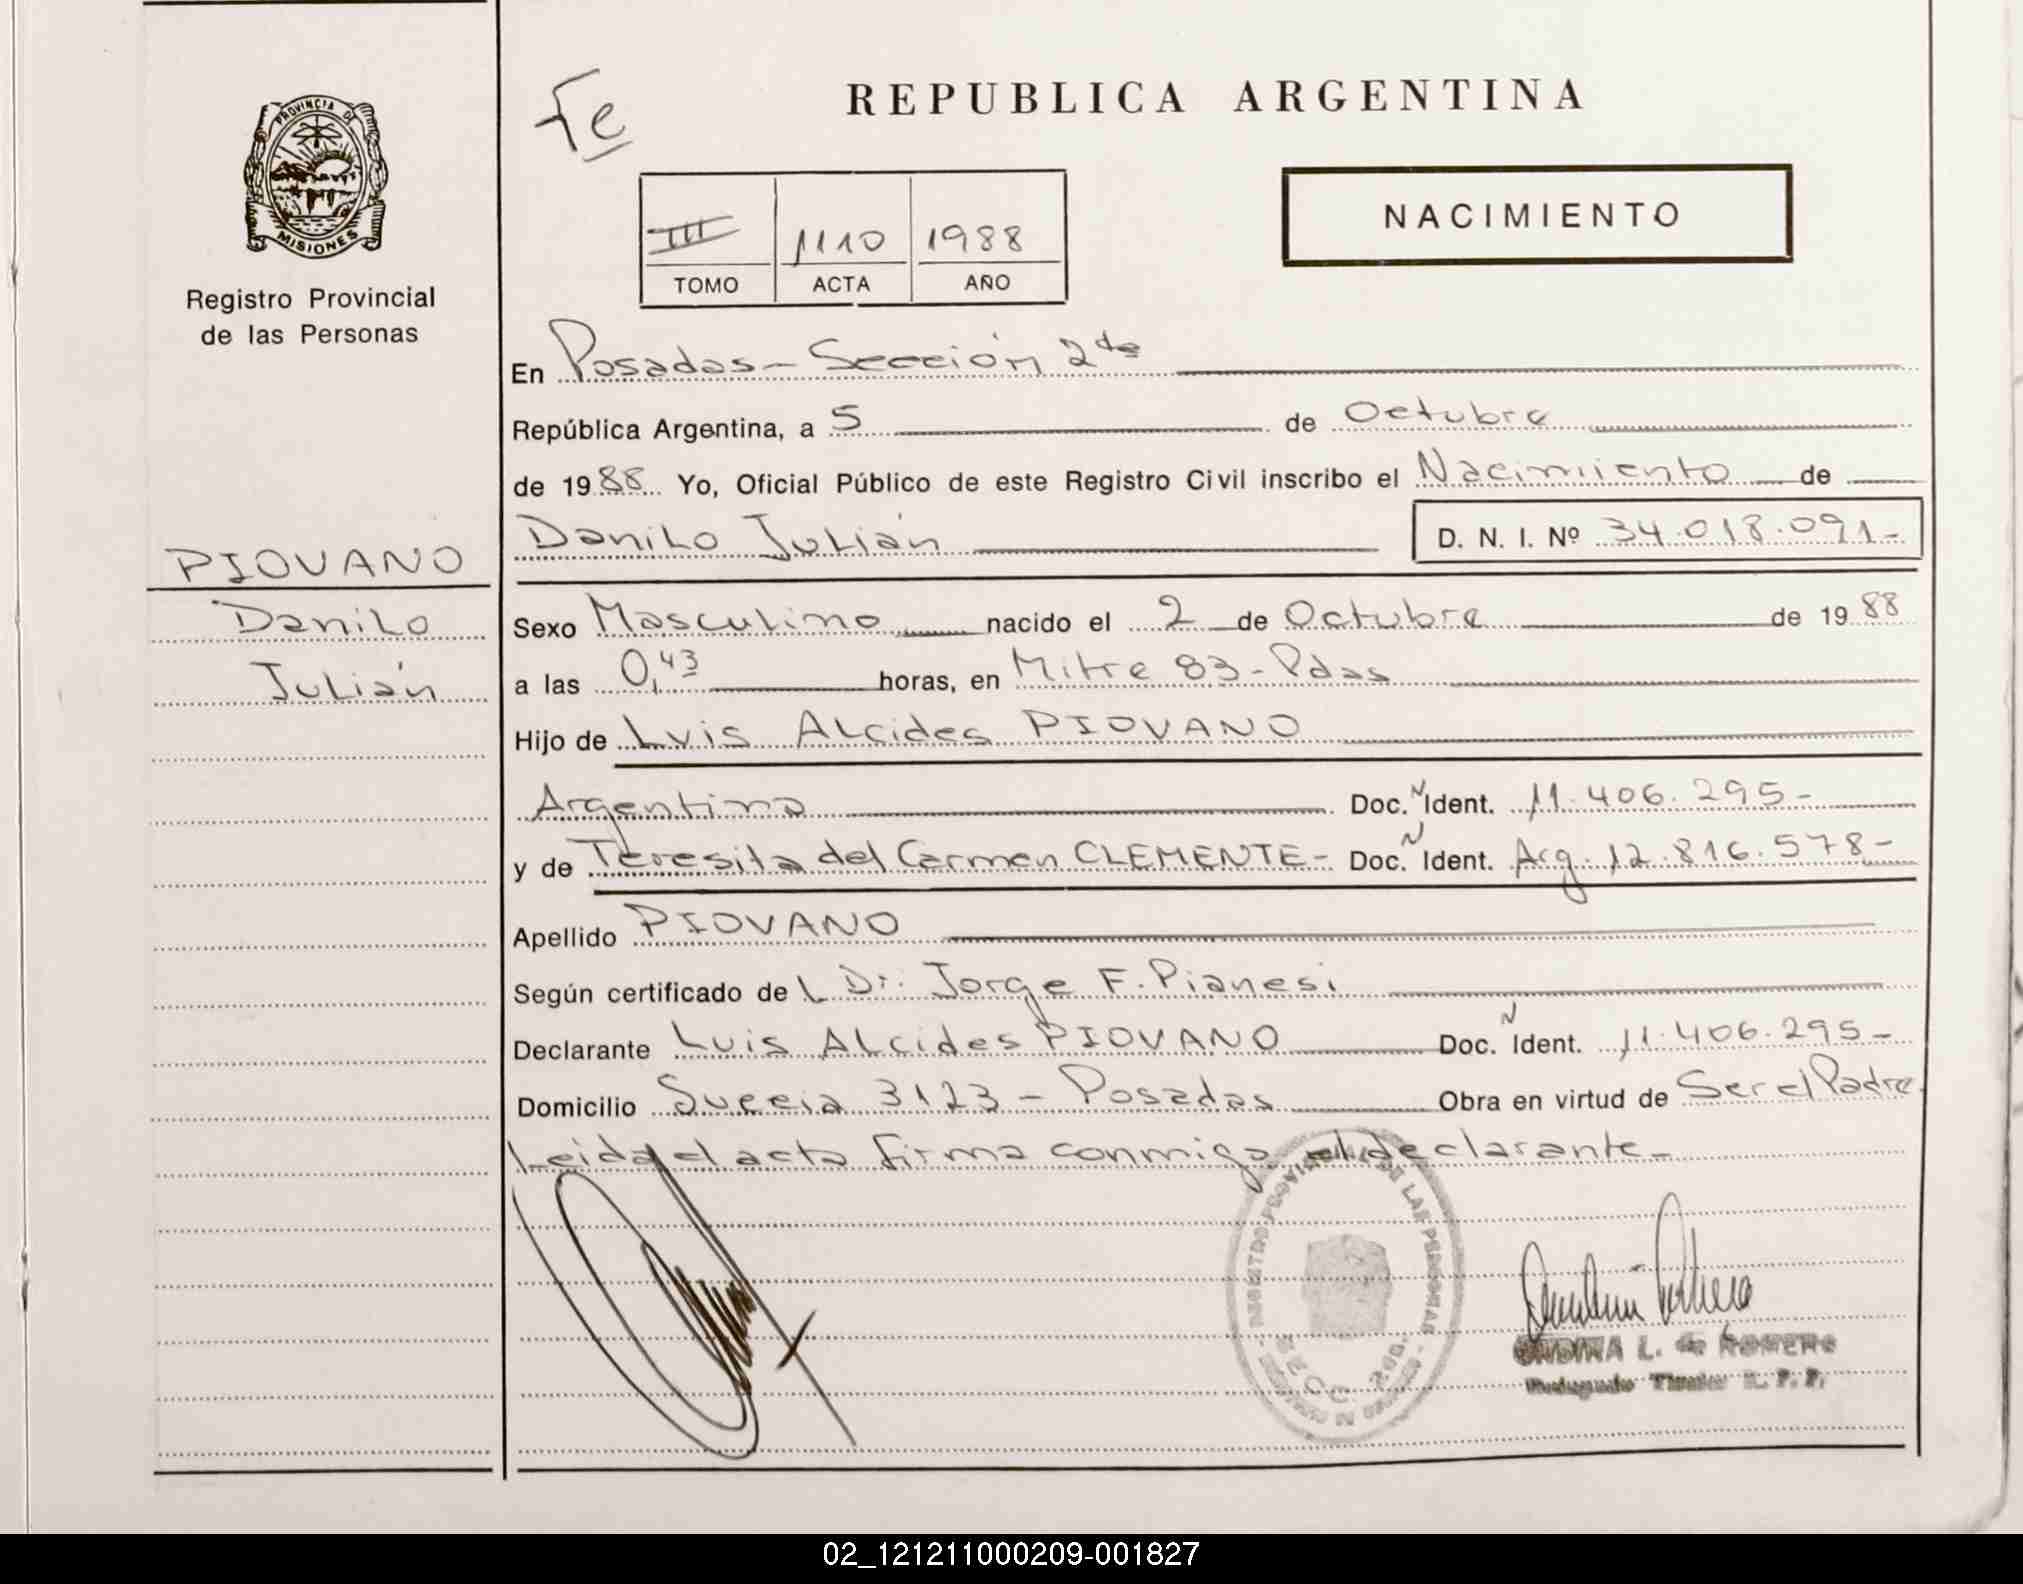 PROVINCIA DE
MISIONES
Registro Provincial
de las Personas
Fe
REPUBLICA ARGENTINA
NACIMIENTO
III 1110 1988
TOMO ACTA AÑO
En Posadas - Sección 2da
República Argentina, a 5 de Octubre
de 1988 Yo, Oficial Público de este Registro Civil inscribo el Nacimiento de
Danilo Julián D. N. I. Nº 34.018.091-
PIOVANO
Danilo
Julián
Sexo Masculino nacido el 2 de Octubre de 1988
a las 0,43 horas, en Mitre 83 - Pdas
Hijo de Luis Alcides PIOVANO
Argentino Doc. N Ident. 11.406.295-
y de Teresita del Carmen CLEMENTE - Doc. N Ident. Arg. 12.816.578-
Apellido PIOVANO
Según certificado de L Dr. Jorge F. Pianesi
Declarante Luis Alcides PIOVANO Doc. N Ident. 11.406.295-
Domicilio Suecia 3123 - Posadas Obra en virtud de Ser el Padre
Leida el acta firma conmigo el declarante-
REGISTRO PROVINCIAL DE LAS PERSONAS
SECC. 2da.
ONDINA L. de ROMERO
02_121211000209-001827